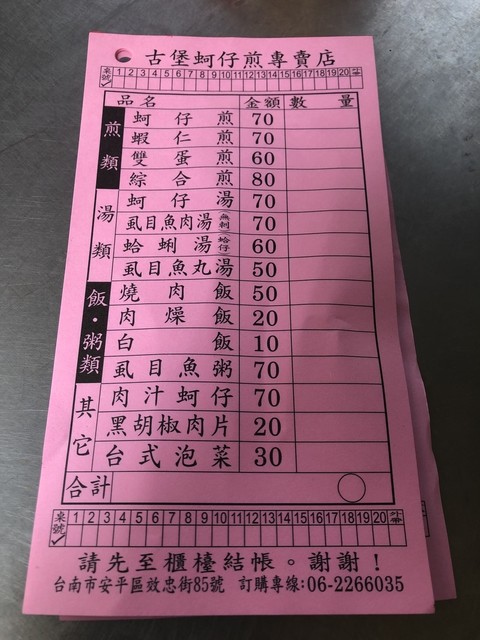 古堡蚵仔煎專賣店
桌號 1 2 3 4 5 6 7 8 9 10 11 12 13 14 15 16 17 18 19 20 外帶
品名 金額 數量
煎類
蚵仔煎 70
蝦仁煎 70
雙蛋煎 60
綜合煎 80
湯類
蚵仔湯 70
虱目魚肉湯(無刺) 70
蛤蜊湯(蛤仔) 60
虱目魚丸湯 50
飯·粥類
燒肉飯 50
肉燥飯 20
白飯 10
虱目魚粥 70
其它
肉汁蚵仔 70
黑胡椒肉片 20
台式泡菜 30
合計
桌號 1 2 3 4 5 6 7 8 9 10 11 12 13 14 15 16 17 18 19 20 外帶
請先至櫃檯結帳。謝謝！
台南市安平區效忠街85號 訂購專線:06-2266035